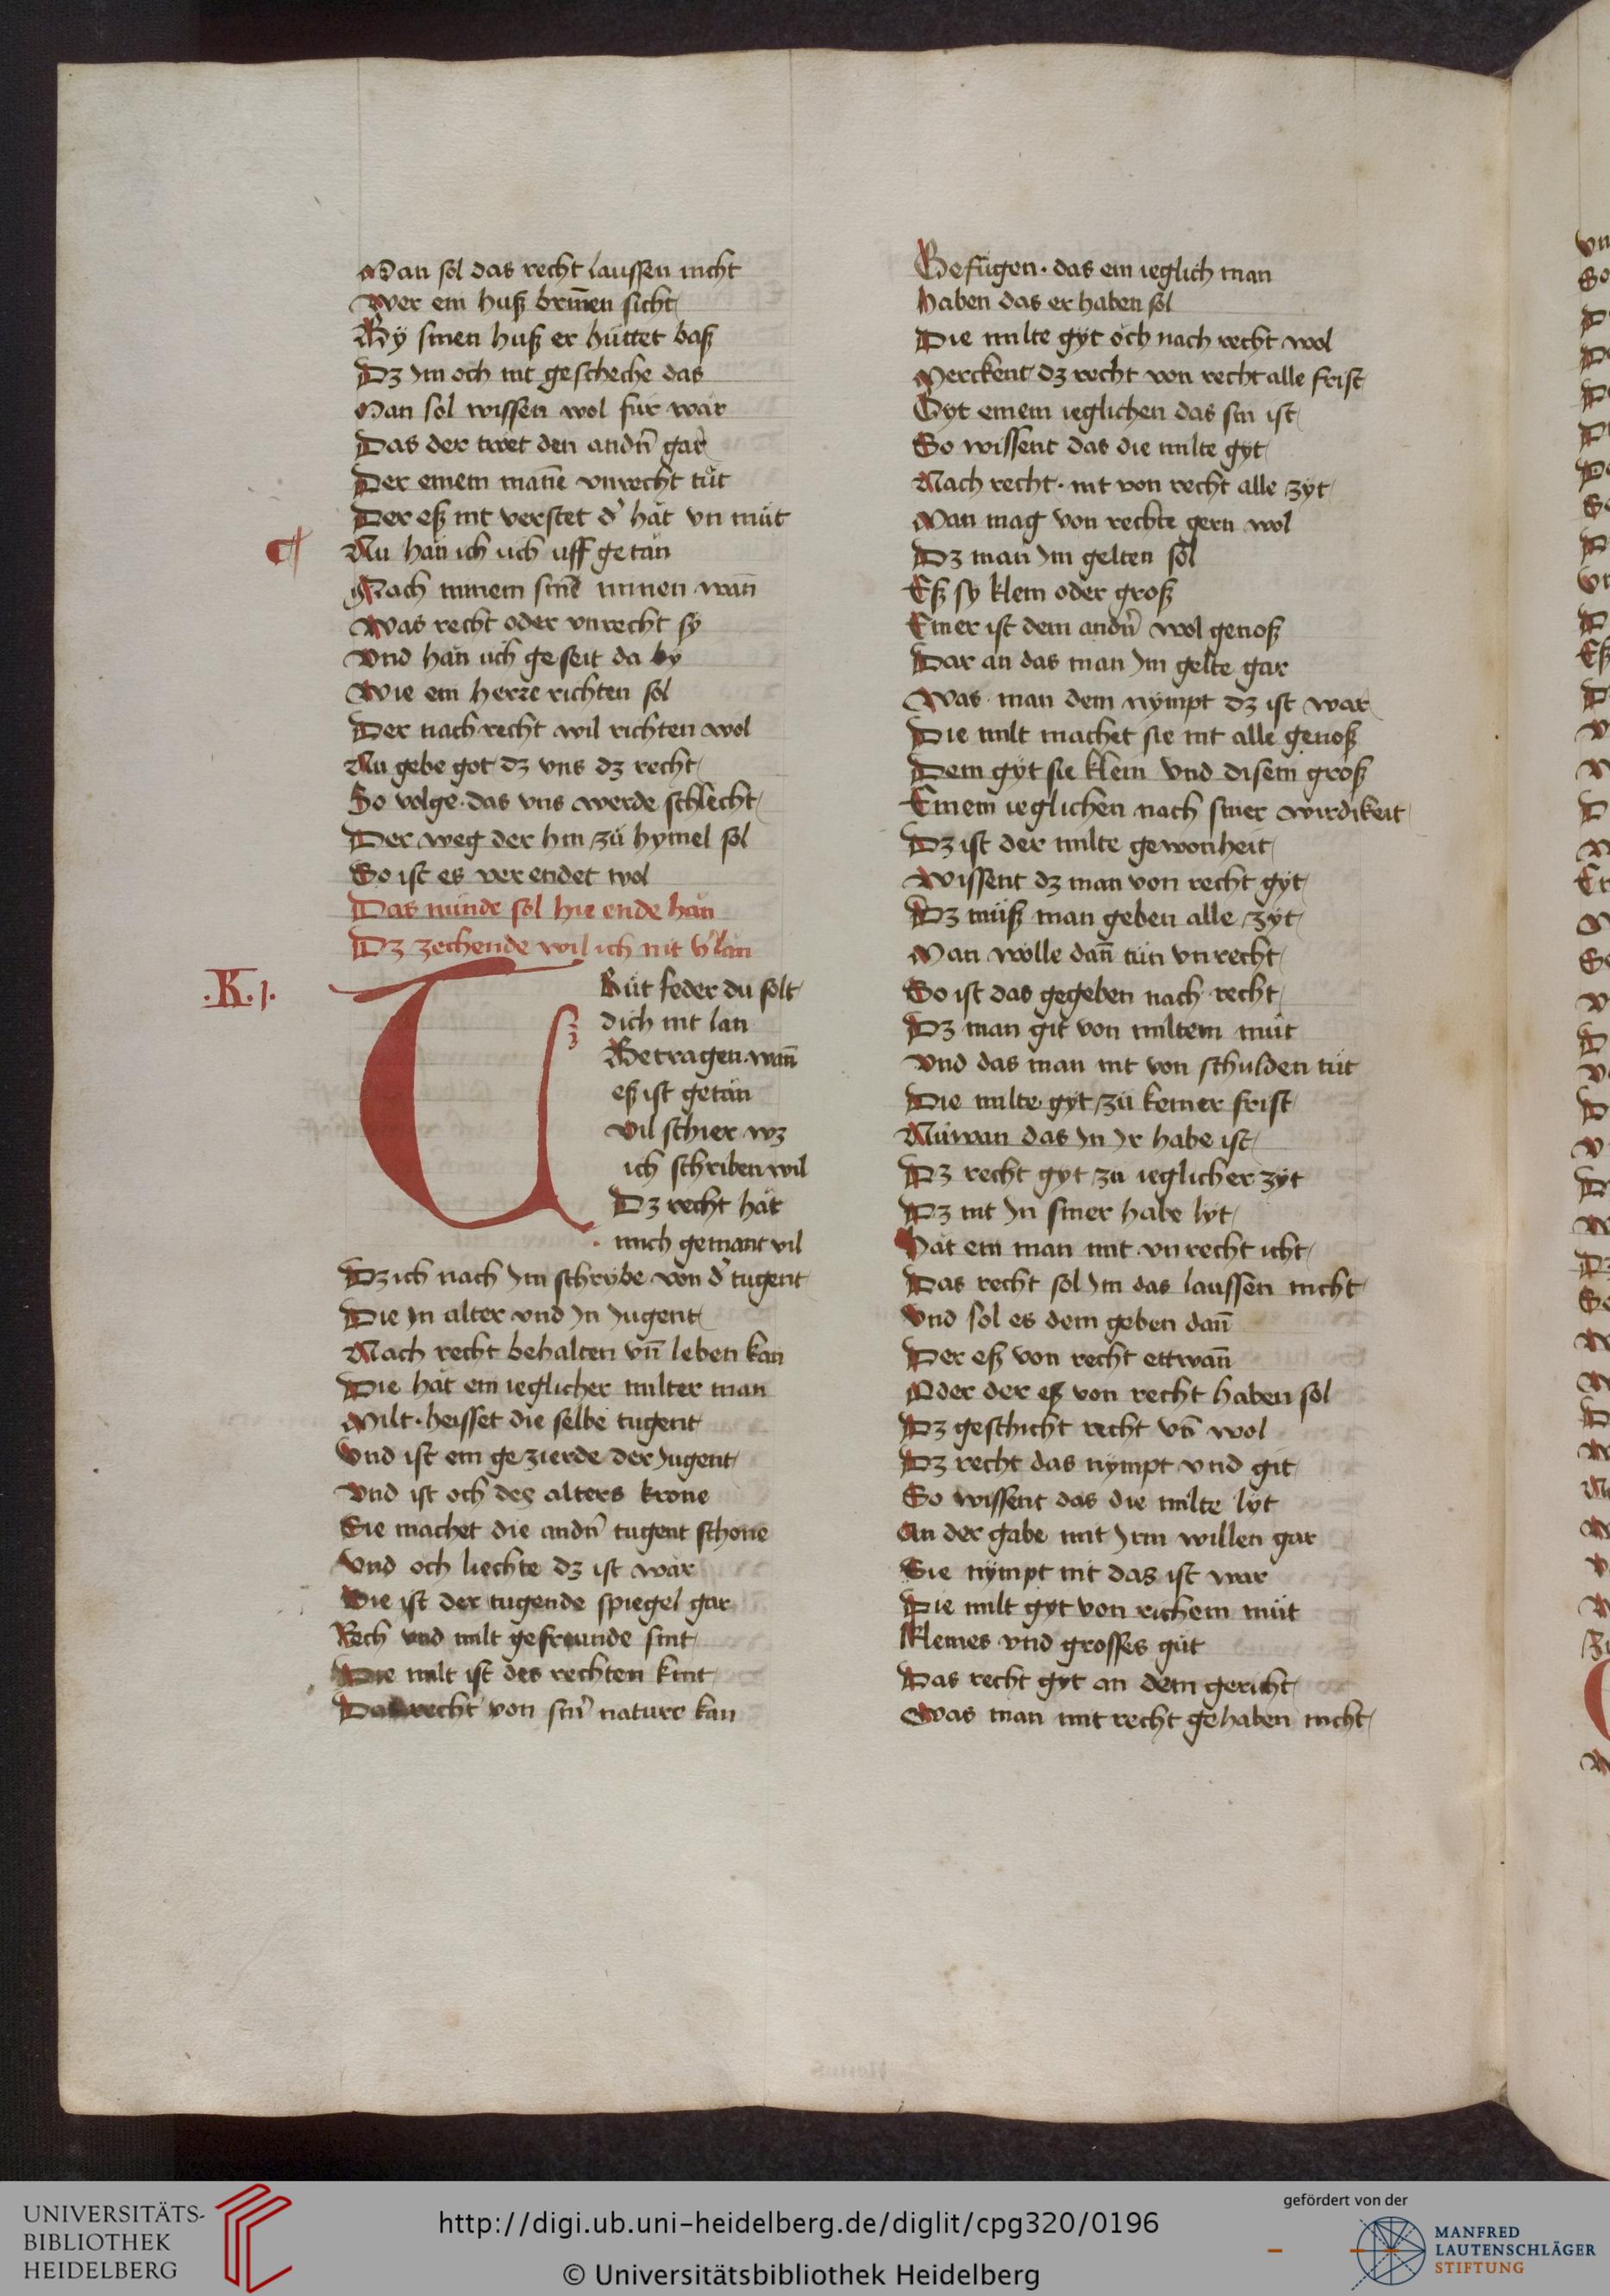 Man sol das recht laussen nicht
Wer ein huß brin̄en sicht
By sinen huß er hüttet baß
Dz Im och nit gescheche das
Man sol wissen wol für wär
Das der twet den andn̄ gar
Der einem man̄e vnrecht tüt
Der eß nit verstet d' hät vn müt
Nu hän ich üch uff getän
Nach minem sin̄e minen wan̄
Was recht oder vnrecht sy
Vnd hän üch geseit da by
Wie ein herre richten sol
Der nach recht wil richten wol
Nu gebe got dz vns dz recht
So volge · das vns werde schlecht
Der weg der hin zü hymel sol
So ist es ver endet wol
Das nünde sol hie ende hän
Dz zechende wil ich nit v'län
.K.j.
T
Rüt feder du solt
dich nit lan
Betragen wan̄
eß ist getän
Vil schier wz
ich schriben wil
Dz recht hät
mich gemant vil
Dz ich nach Im schrybe von d' tugent
Die In alter vnd In Jugent
Nach recht behalten vn̄ leben kan
Die hät ein ieglicher milter man
Milt · heisset die selbe tugent
Vnd ist ein gezierde der Jugent
Vnd ist och des alters krone
Sie machet die andn̄ tugent schone
Vnd och liechte dz ist wär
Die ist der tugende spiegel gar
Rech vnd milt gefreunde sint
Die milt ist des rechten kint
Das recht von sin' nature kan
Gefügen · das ein ieglich man
haben das er haben sol
Die milte gyt och nach recht wol
Merckent dz recht von recht alle frist
Gyt einem ieglichen das sin ist
So wissent das die milte gyt
Nach recht · nit von recht alle zyt
Man mag von rechte gern wol
Dz man Im gelten sol
Eß sy klein oder groß
Einer ist dem andn̄ wol genoß
Dar an das man Im gelte gar
Was man dem nympt dz ist war
Die milt machet sie nit alle genoß
Dem gyt sie klein vnd disem groß
Einem ieglichen nach siner wirdikeit
Dz ist der milte gewonheit
Wissent dz man von recht gyt
Dz müß man geben alle zyt
Man wölle dan̄ tün vnrecht
So ist das gegeben nach recht
Dz man git von miltem müt
Vnd das man nit von schulden tüt
Die milte gyt zü keiner frist
Nüwan das In Ir habe ist
Dz recht gyt zü ieglicher zyt
Dz nit In siner habe lyt
Hät ein man mit vnrecht icht
Das recht sol Im das laussen nicht
Vnd sol es dem geben dan̄
Der eß von recht ettwan̄
Oder der eß von recht haben sol
Dz geschicht recht vn̄ wol
Dz recht das nympt vnd git
So wissent das die milte lyt
An der gabe mit Irm willen gar
Sie nympt nit das ist war
Die milt gyt von richem müt
Kleines vnd grosses güt
Das recht gyt an dem gericht
Was man mit recht gehaben nicht
UNIVERSITÄTS-
BIBLIOTHEK
HEIDELBERG
http://digi.ub.uni-heidelberg.de/diglit/cpg320/0196
© Universitätsbibliothek Heidelberg
gefördert von der
MANFRED
LAUTENSCHLÄGER
STIFTUNG